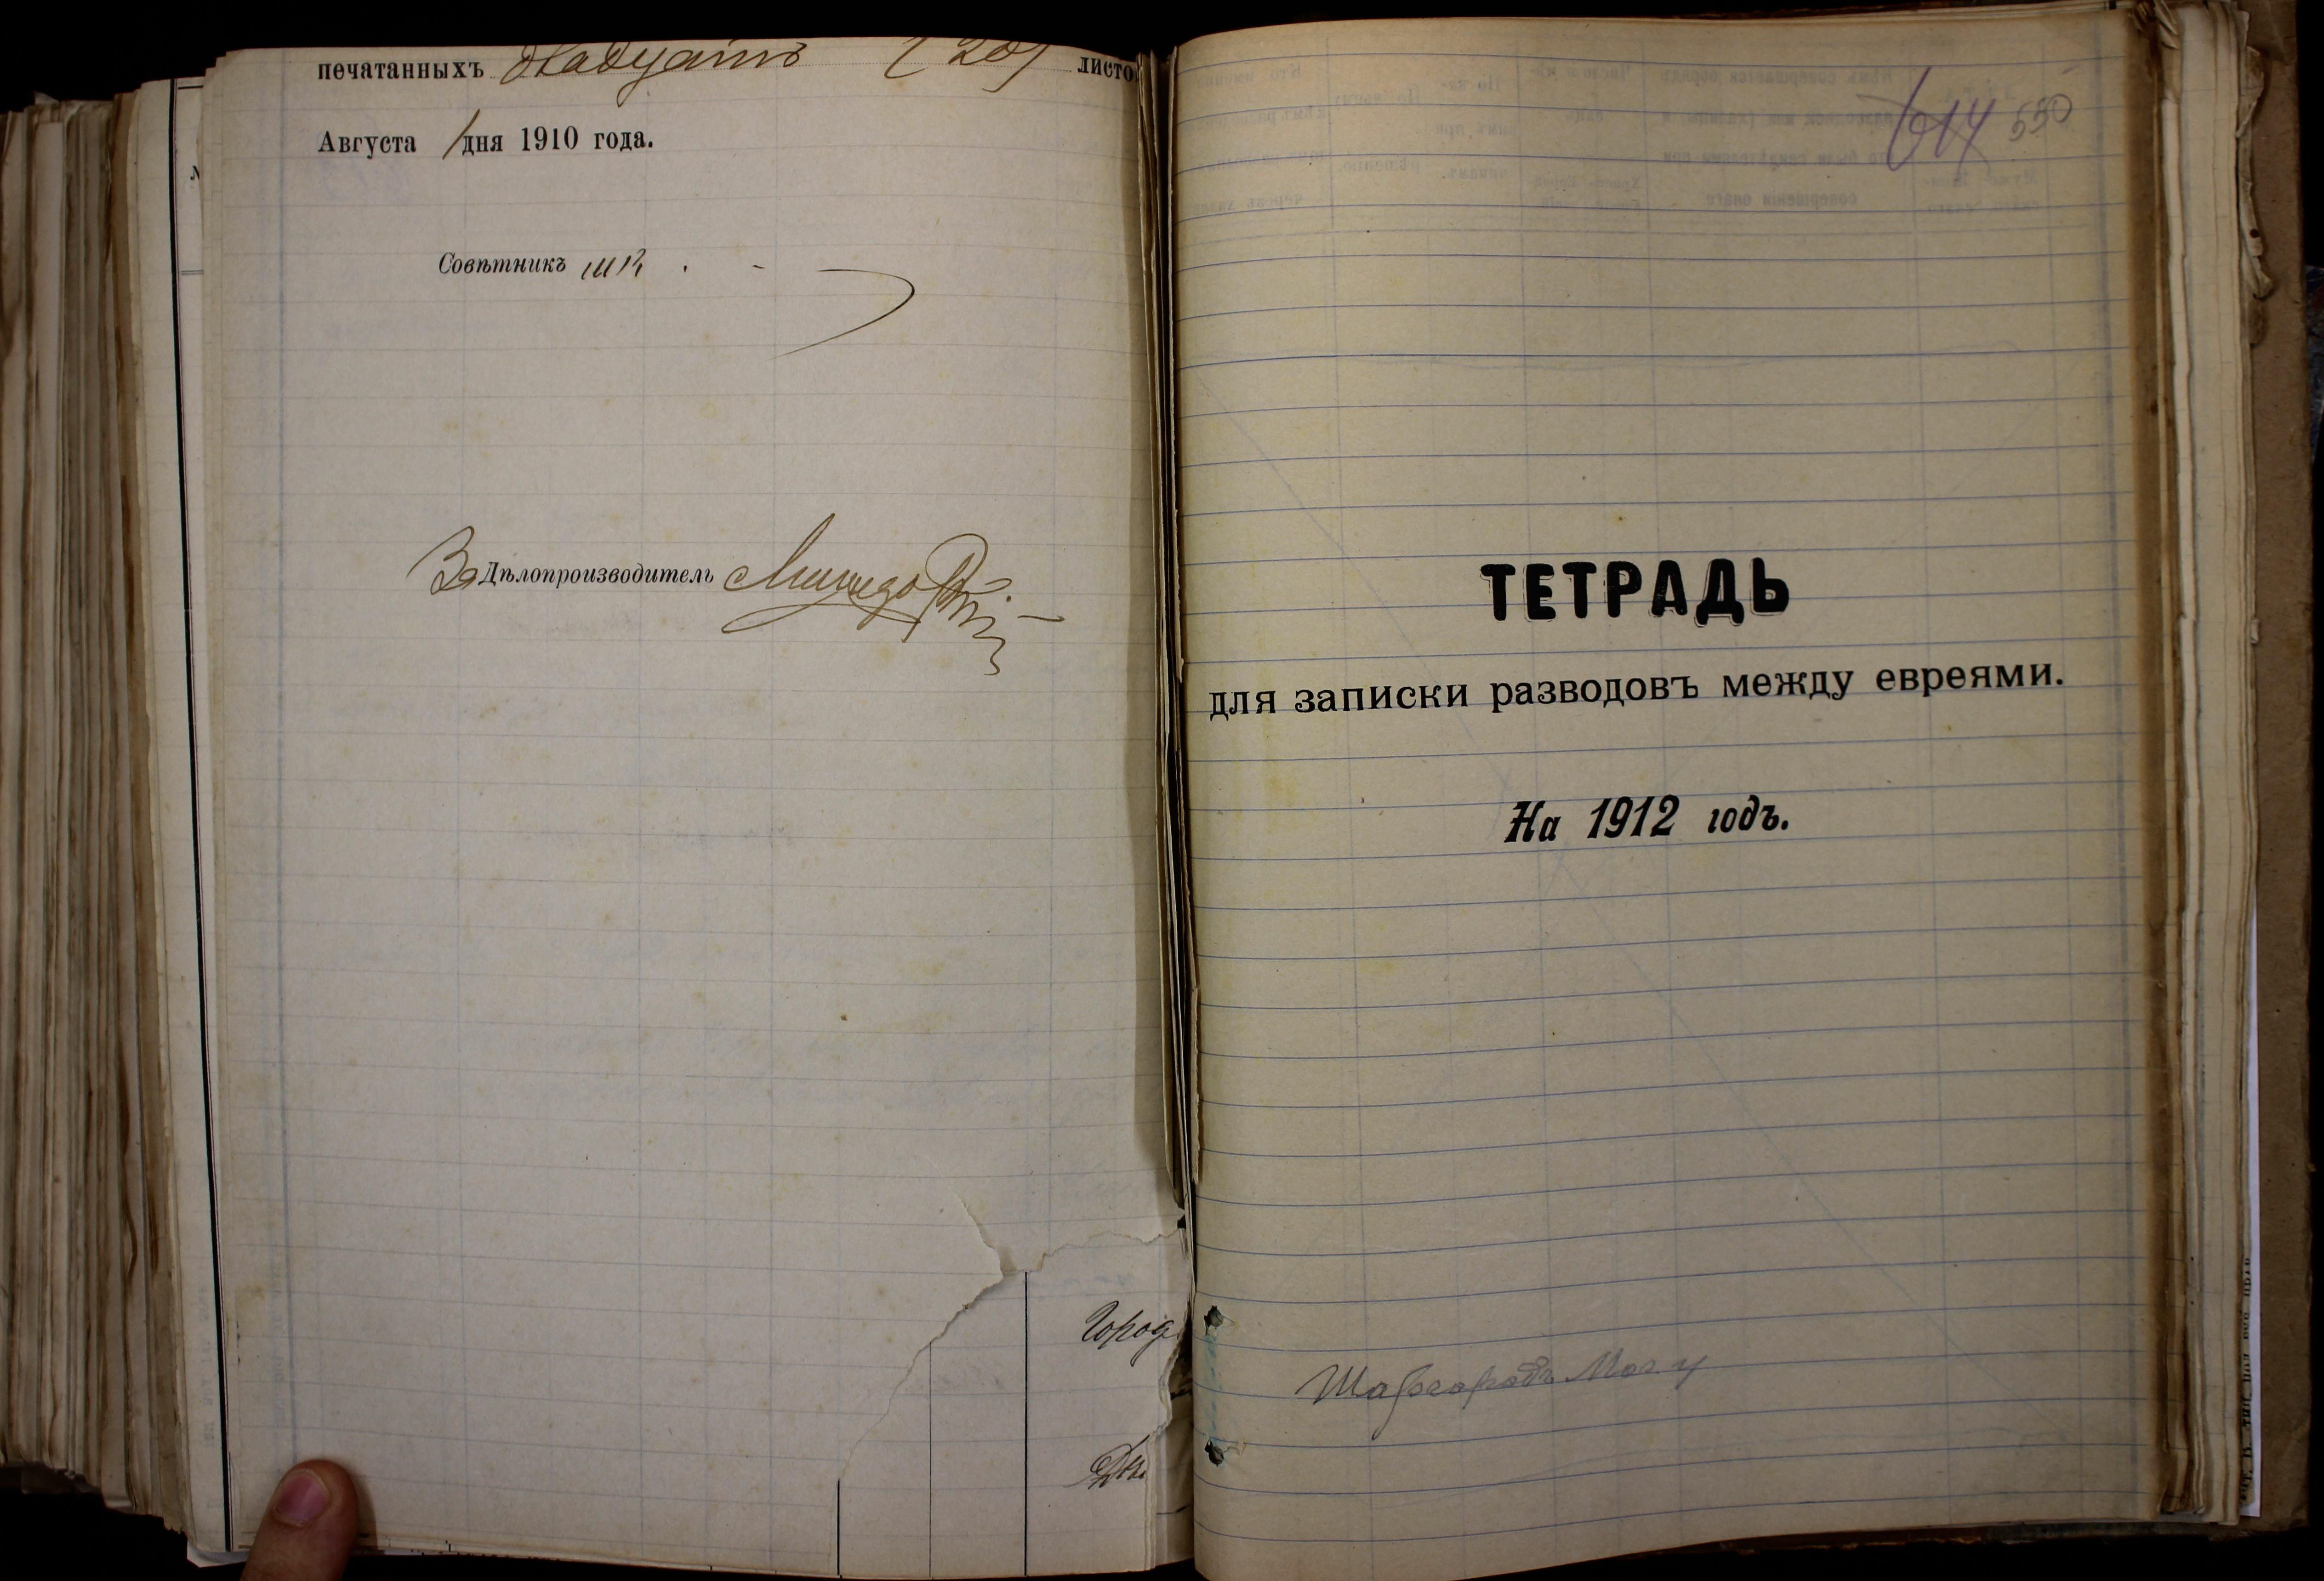 печатанныхъ двадцать (20) листо
Августа 1 дня 1910 года.
Совѣтникъ
За Дѣлопроизводитель
Город
614 550
ТЕТРАДЬ
для записки разводовъ между евреями.
На 1912 годъ.
Шаргородъ Мог. у